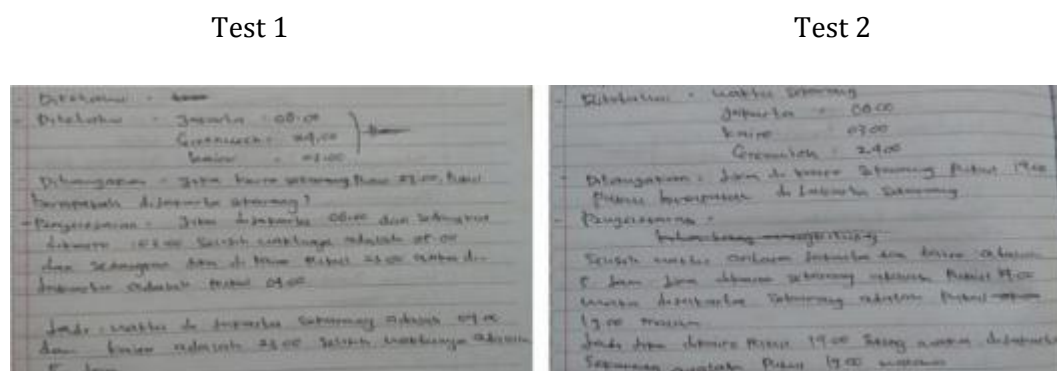 Test 1
Test 2
- Diketahui :
- Diketahui : Jakarta : 08.00
Greenwich : 24.00
Kairo : 03.00
- Ditanyakan : Jika kairo sekarang Pukul 23.00, Pukul
berapakah di Jakarta sekarang?
- Penyelesaian : Jika di Jakarta 08.00 dan sedangkan
dikairo : 03.00 Selisih waktunya adalah 05.00
dan sedangkan di kairo Pukul 23.00 di
Jakarta adalah Pukul 04.00
Jadi : waktu di Jakarta Sekarang adalah 04.00
dan kairo adalah 23.00 Selisih waktunya adalah
5 Jam
- Diketahui : waktu Sekarang
Jakarta : 08.00
kairo : 03.00
Greenwich : 24.00
- Ditanyakan : Jam di kairo Sekarang Pukul 14.00
Pukul berapakah di Jakarta Sekarang
- Penyelesaian :
Selisih waktu antara Jakarta dan kairo adalah
5 Jam Jam dikairo sekarang adalah Pukul 14.00
waktu Sekarang adalah Pukul
19.00 malam
Jadi dikairo Pukul 14.00 diJakarta
Sekarang adalah Pukul 19.00 malam